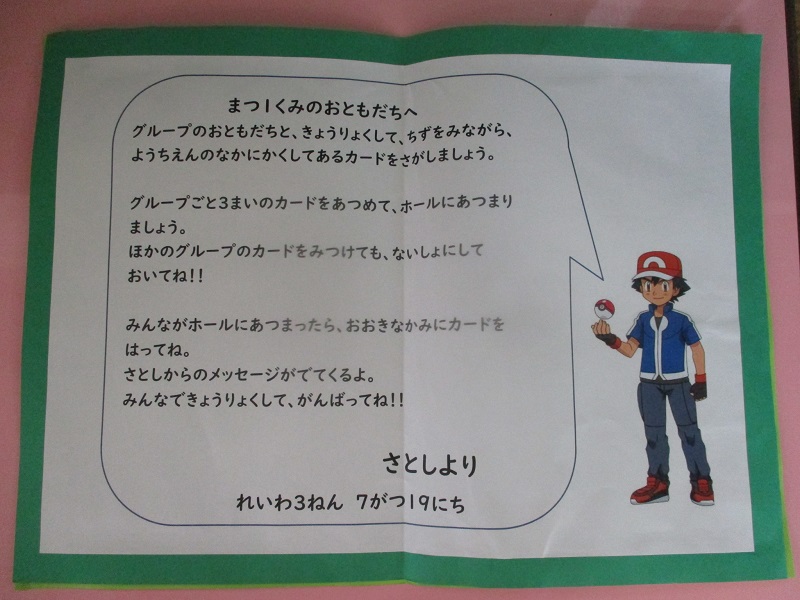 まつ1くみのおともだちへ
グループのおともだちと、きょうりょくして、ちずをみながら、
ようちえんのなかにかくしてあるカードをさがしましょう。
グループごと3まいのカードをあつめて、ホールにあつまり
ましょう。
ほかのグループのカードをみつけても、ないしょにして
おいてね!!
みんながホールにあつまったら、おおきなかみにカードを
はってね。
さとしからのメッセージがでてくるよ。
みんなできょうりょくして、がんばってね!!
さとしより
れいわ3ねん 7がつ19にち